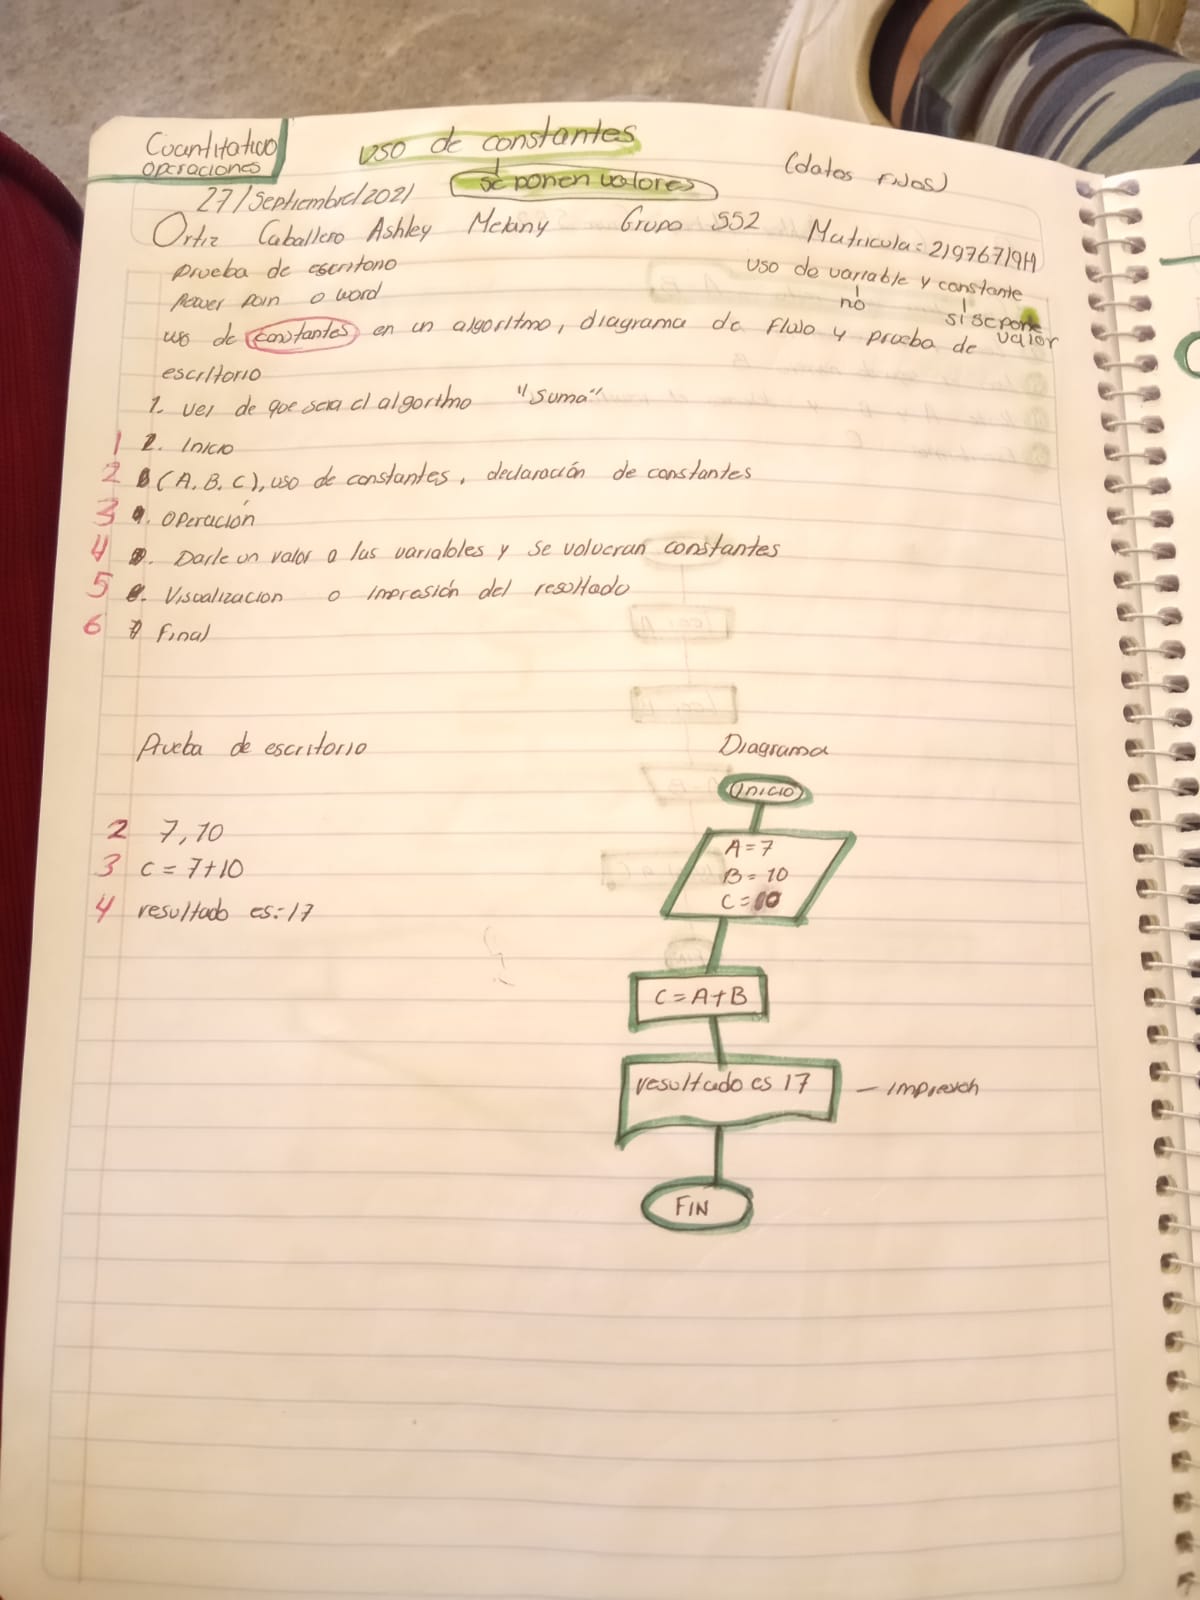 Cuantitativo
operaciones
uso de constantes
se ponen valores
(datos fijos)
27/Septiembre/2021
Ortiz Caballero Ashley Melany Grupo 552 Matricula=21976719H
prueba de escritorio
power poin o word
uso de variable y constante
no
si se pone
valor
uso de constantes en un algoritmo, diagrama de flujo y prueba de
escritorio
1. ver de que sera el algoritmo "suma"
1 2. Inicio
2 (A, B, C), uso de constantes, declaración de constantes
3 Operación
4 Darle un valor a las variables y se volveran constantes
5 Visualizacion o impresión del resultado
6 7 Final
Prueba de escritorio
2 7, 10
3 C = 7+10
4 resultado es: 17
Diagrama
Inicio
A=7
B=10
C=
C=A+B
resultado es 17
– Impresion
FIN